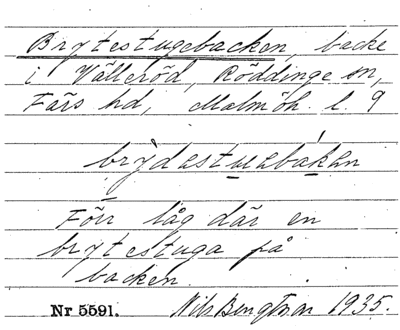 Brytestugebacken, backe
i Välleröd, Röddinge sn,
Färs hd, Malmöh. l. 9
brỳdastuabákan
Förr låg där en
brytestuga på
backen.
Nr 5591. Nils Bengtson 1935.